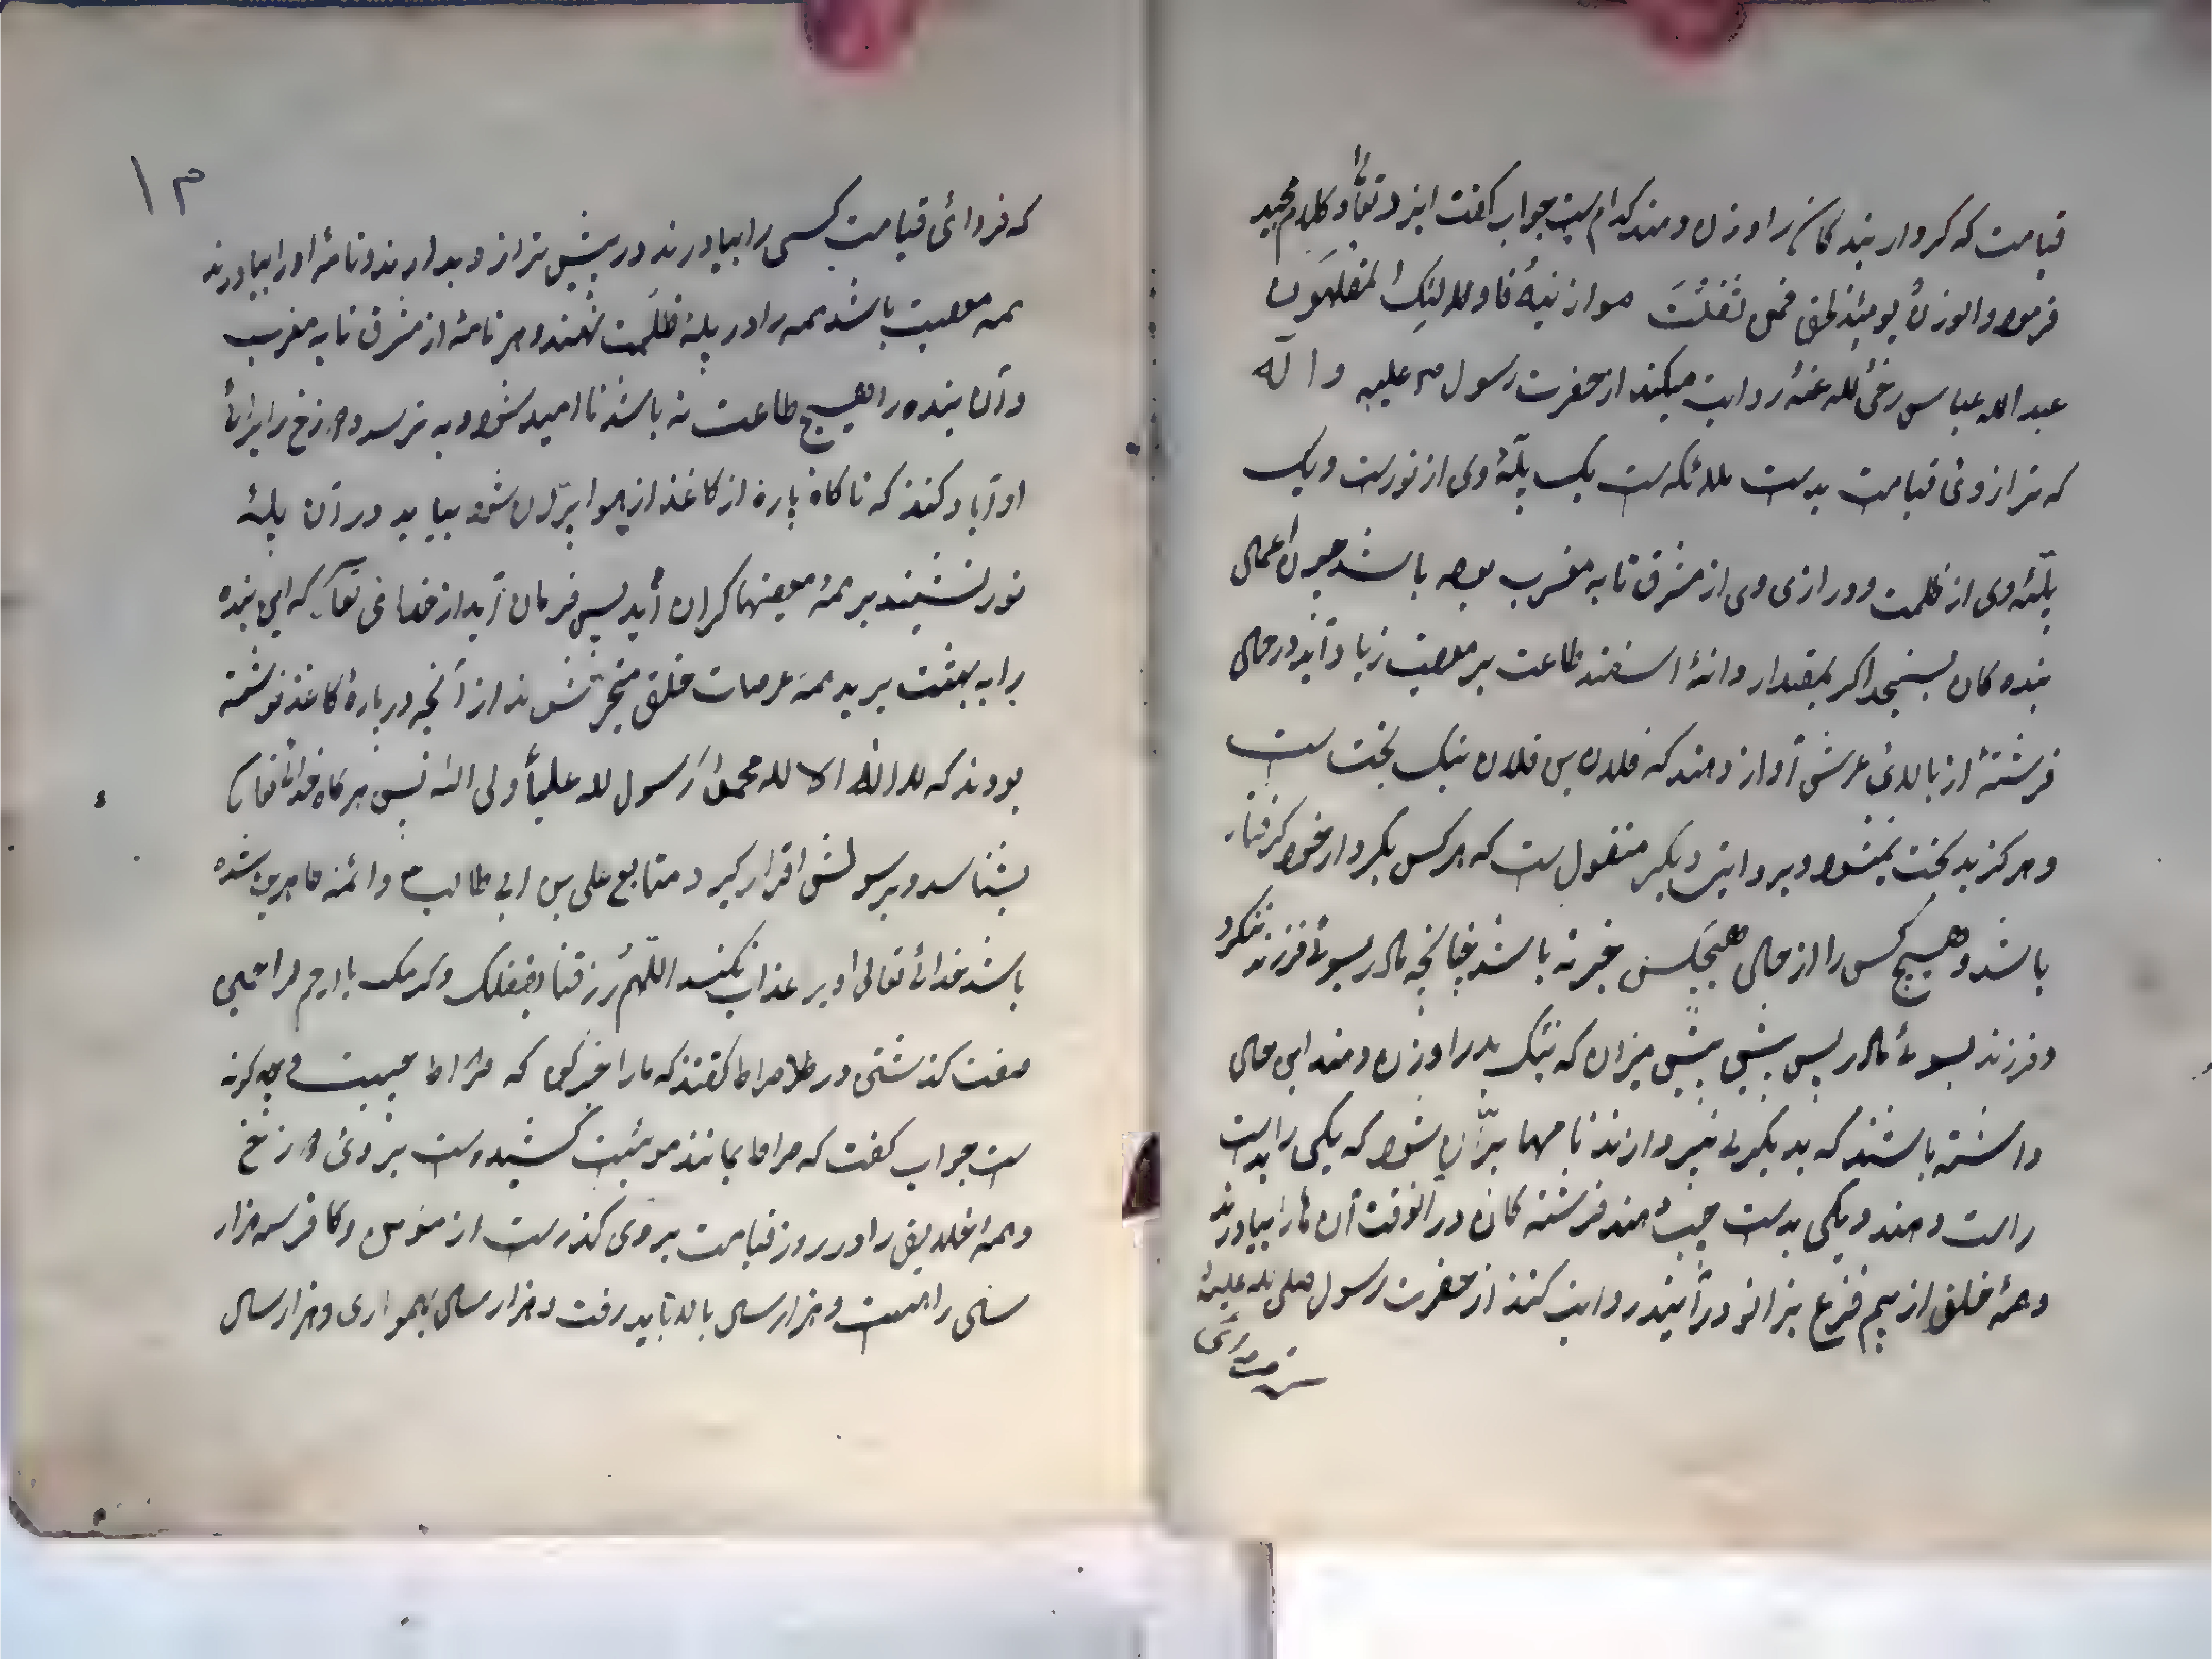 قیامت که کردار بندکان را وزن دهند کدام ست جواب کفت ایزد تعالی در کلام مجید
فرمود والوزنُ یومئِذٍ الحق فمن ثقلَتْ موازنیهُ فاولٰئِکَ المفلحون
عبدالله عباس رضی الله عنهُ روایت میکند از حضرت رسول ص علیه و اله
که ترازوئ قیامت بدست ملائکه ست یک پلّهٔ وی از نورست و یک
پلّهٔ وی از ظلمت و درازی وی از مشرق تا به مغرب بوده باشد چون اعمال
بنده کان بسنجد اکر بمقدار دانهٔ اسفند طاعت بر معصیت زیاد آید در حال
فرشتهٔ از بالائ عرش آواز دهند که فلان بن فلان نیک بخت ست
و هرکز بدبخت نمیشود و بروایتی دیکر منقول ست که هرکس بکردار خود کرفتار
باشد و هیچ کس را از حال هیچکس خبر نه باشد چنانچه مادر بسوئ فرزند ننکرد
و فرزند بسوئ مادر پس پیش میزان که نیک بد را وزن دهند این حال
داشته باشند که بدیکری نپردازند نامها پرّان شود که یکی را بدست
راست دهند و یکی بدست چپ دهند فرشته کان در آنوقت آن ها را بیاورند
و همهٔ خلق از بیم فزع بزانو در آیند روایت کنند از حضرت رسول صلی الله علیه
۱۳
که فردائ قیامت کسی را بیاورند در پیش ترازو بدارند و نامهٔ او را بیاورند
همه معصیت باشد همه را در پلهٔ ظلمت نهند و هر نامهٔ از مشرق تا به مغرب
و آن بنده را هیچ طاعت نه باشد ناامید شود و به ترسد و دوزخ را برائ
او آباد کنند که ناکاه پارهٔ از کاغذ از هوا پرّان شود بیاید در آن پلهٔ
نور نشیند بر همهٔ معصیتها کران آید پس فرمان آید از خدائ تعالی که این بنده
را به بهشت برید همه عرصات خلق متحیّر شوند از آنچه در پارهٔ کاغذ نوشته
بودند که لا اله الا الله محمد رسول الله علیاً ولی الله پس هرکاه خدائ تعالی
بشناسد و برسولش اقرار کیرد متابع علی بن ابی طالب ع و ائمه طاهرین شده
باشد خدائ تعالی او بر عذاب نکند اللّهمّ رزقنا بفضلک و کرمک یا ارحم الراحمین
صفت کذشتن در صراط کفتند که ما را خبر کوی که صراط چیست و چه کونه
ست جواب کفت که صراط بمانند موئیست کشیده ست بروئ دوزخ
و همهٔ خلایق را در روز قیامت بر وی کذرست از مؤمن و کافر سه هزار
سال راهست و هزار سال بالا باید رفت و هزار سال بهمواری و هزار سال